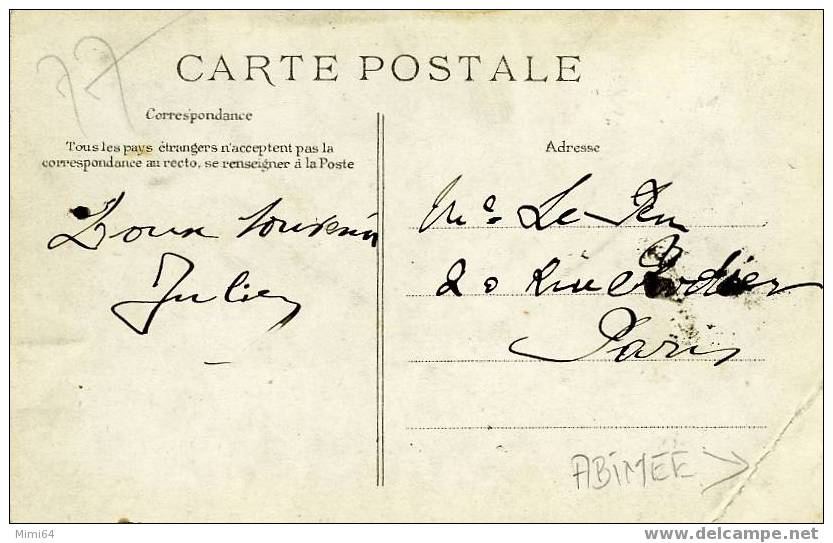 77
CARTE POSTALE
Correspondance
Tous les pays étrangers n'acceptent pas la
correspondance au recto, se renseigner à la Poste
Doux souvenir
Julien
Adresse
Le
20 Rue Rodier
Paris
ABIMÉE
Mimi64
www.delcampe.net